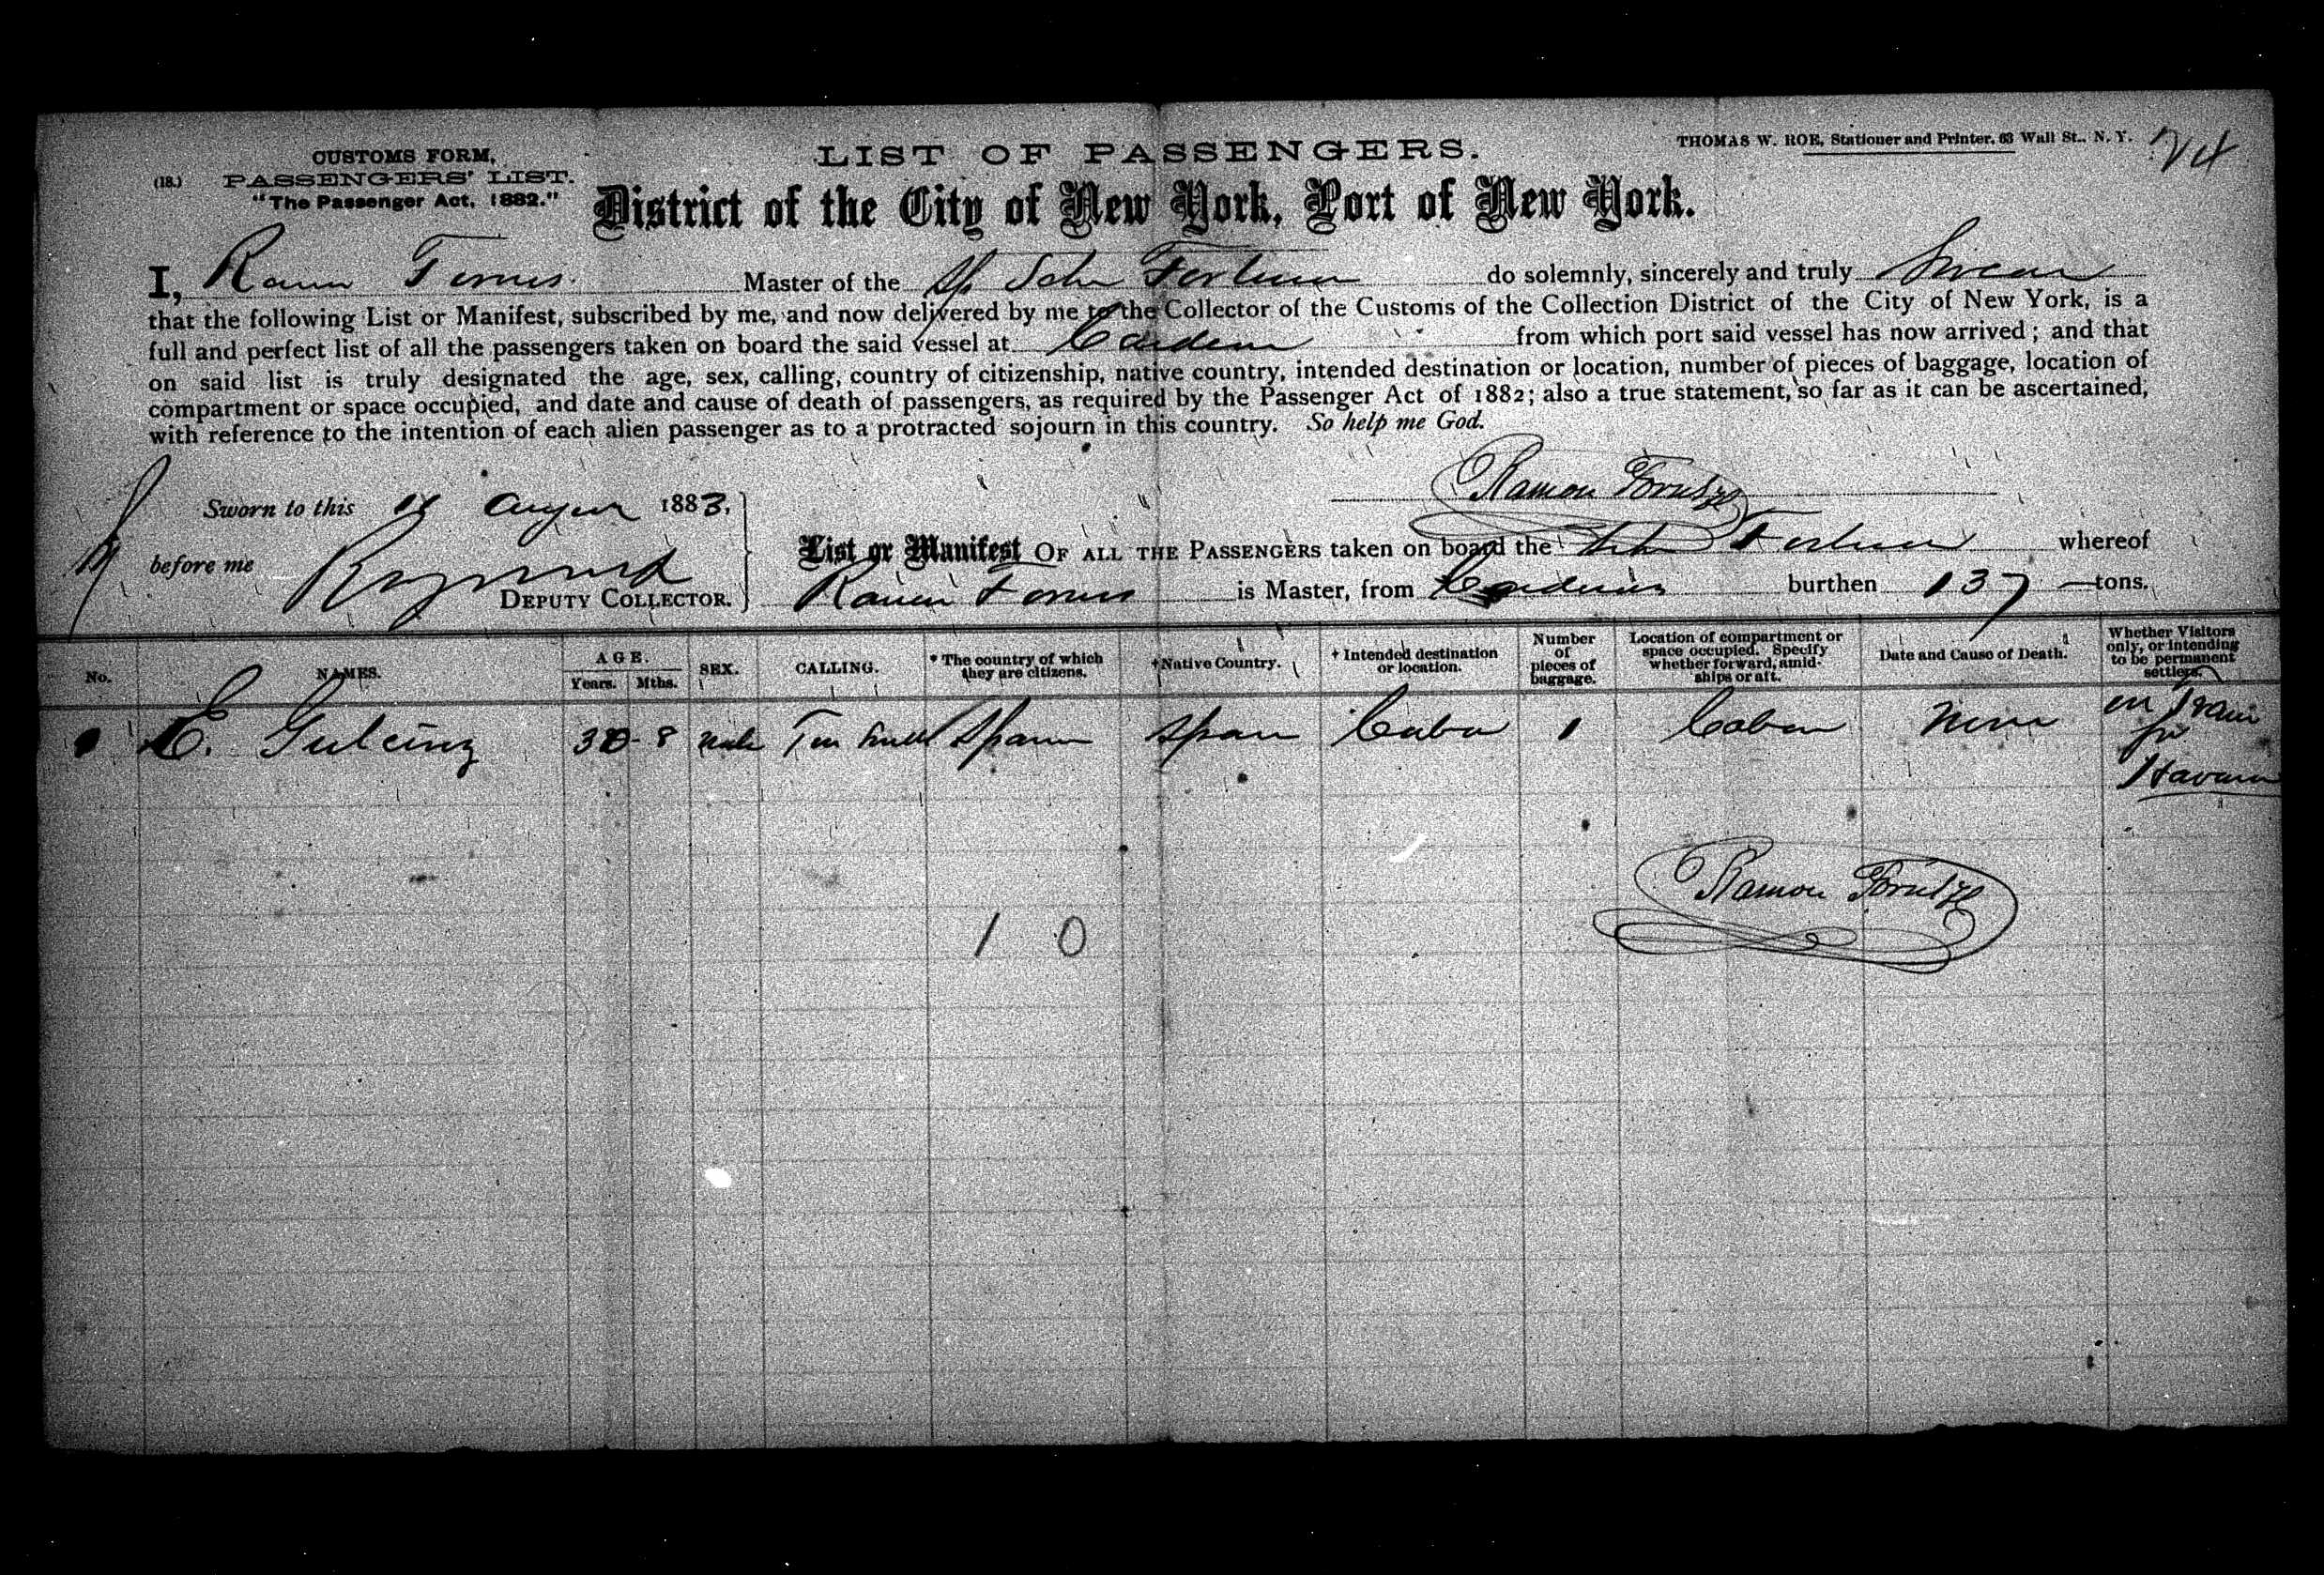 THOMAS W. ROE, Stationer and Printer, 63 Wall St., N. Y.
CUSTOMS FORM,
(18.) PASSENGERS' LIST.
"The Passenger Act, 1882."
LIST OF PASSENGERS.
District of the City of New York, Port of New York.
I, Ramon Master of the John do solemnly, sincerely and truly Swear
that the following List or Manifest, subscribed by me, and now delivered by me to the Collector of the Customs of the Collection District of the City of New York, is a
full and perfect list of all the passengers taken on board the said vessel at from which port said vessel has now arrived; and that
on said list is truly designated the age, sex, calling, country of citizenship, native country, intended destination or location, number of pieces of baggage, location of
compartment or space occupied, and date and cause of death of passengers, as required by the Passenger Act of 1882; also a true statement, so far as it can be ascertained,
with reference to the intention of each alien passenger as to a protracted sojourn in this country. So help me God.
Ramon
Sworn to this August 1883,
before me
DEPUTY COLLECTOR.
List or Manifest OF ALL THE PASSENGERS taken on board the John whereof
Ramon is Master, from Cardenas burthen 137 tons.
No. NAMES. AGE. Years. Mths. SEX. CALLING. * The country of which they are citizens. † Native Country. † Intended destination or location. Number of pieces of baggage. Location of compartment or space occupied. Specify whether forward, amidships or aft. Date and Cause of Death. Whether Visitors only, or intending to be permanent settlers.
E. 30 8 male Spain Spain Cuba 1 Cabin None in Trans for Havana
Ramon
1 0